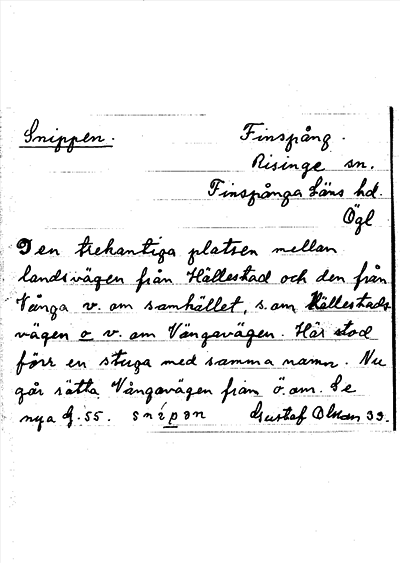 Snippen.
Finspång.
Risinge sn.
Finspånga läns hd.
Ögl
Den trekantiga platsen mellan
landsvägen från Hällestad och den från
Vånga v. om samhället, s. om Hällestads
vägen o v. om Vångavägen. Här stod
förr en stuga med samma namn. Nu
går rätta Vångavägen fram ö. om. Se
nya g. 55. snípən Gustaf Olson 33.